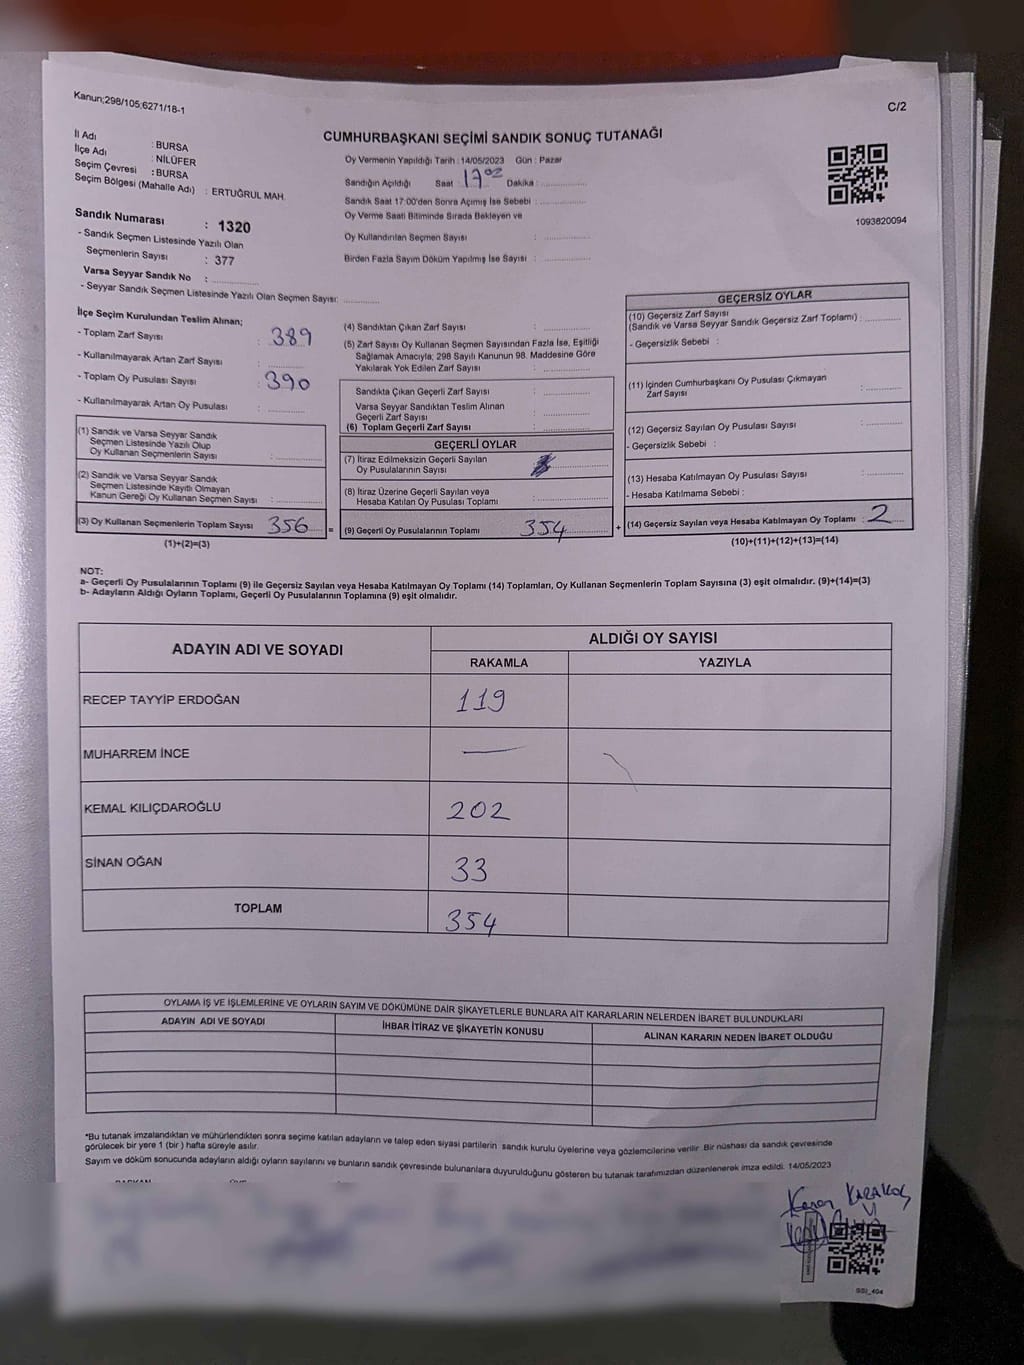 Kanun;298/105;6271/18-1
C/2
CUMHURBAŞKANI SEÇİMİ SANDIK SONUÇ TUTANAĞI
İl Adı : BURSA
İlçe Adı : NİLÜFER
Seçim Çevresi : BURSA
Seçim Bölgesi (Mahalle Adı) : ERTUĞRUL MAH.
Sandık Numarası : 1320
- Sandık Seçmen Listesinde Yazılı Olan
Seçmenlerin Sayısı : 377
Varsa Seyyar Sandık No : ..............
- Seyyar Sandık Seçmen Listesinde Yazılı Olan Seçmen Sayısı: ..............
Oy Vermenin Yapıldığı Tarih : 14/05/2023 Gün : Pazar
Sandığın Açıldığı Saat : 17 02 Dakika : ..............
Sandık Saat 17:00'den Sonra Açımış İse Sebebi : ..............
Oy Verme Saati Bitiminde Sırada Bekleyen ve
Oy Kullandırılan Seçmen Sayısı : ..............
Birden Fazla Sayım Döküm Yapılmış İse Sayısı : ..............
1093820094
İlçe Seçim Kurulundan Teslim Alınan;
- Toplam Zarf Sayısı : 389
- Kullanılmayarak Artan Zarf Sayısı : ..............
- Toplam Oy Pusulası Sayısı : 390
- Kullanılmayarak Artan Oy Pusulası : ..............
(1) Sandık ve Varsa Seyyar Sandık
Seçmen Listesinde Yazılı Olup
Oy Kullanan Seçmenlerin Sayısı : ..............
(2) Sandık ve Varsa Seyyar Sandık
Seçmen Listesinde Kayıtlı Olmayan
Kanun Gereği Oy Kullanan Seçmen Sayısı : ..............
(3) Oy Kullanan Seçmenlerin Toplam Sayısı : 356 =
(1)+(2)=(3)
(4) Sandıktan Çıkan Zarf Sayısı : ..............
(5) Zarf Sayısı Oy Kullanan Seçmen Sayısından Fazla İse, Eşitliği
Sağlamak Amacıyla; 298 Sayılı Kanunun 98. Maddesine Göre
Yakılarak Yok Edilen Zarf Sayısı : ..............
Sandıkta Çıkan Geçerli Zarf Sayısı : ..............
Varsa Seyyar Sandıktan Teslim Alınan
Geçerli Zarf Sayısı : ..............
(6) Toplam Geçerli Zarf Sayısı : ..............
GEÇERLİ OYLAR
(7) İtiraz Edilmeksizin Geçerli Sayılan
Oy Pusulalarının Sayısı : ..............
(8) İtiraz Üzerine Geçerli Sayılan veya
Hesaba Katılan Oy Pusulası Toplamı : ..............
(9) Geçerli Oy Pusulalarının Toplamı : 354 +
GEÇERSİZ OYLAR
(10) Geçersiz Zarf Sayısı
(Sandık ve Varsa Seyyar Sandık Geçersiz Zarf Toplamı) : ..............
- Geçersizlik Sebebi :
(11) İçinden Cumhurbaşkanı Oy Pusulası Çıkmayan
Zarf Sayısı : ..............
(12) Geçersiz Sayılan Oy Pusulası Sayısı : ..............
- Geçersizlik Sebebi :
(13) Hesaba Katılmayan Oy Pusulası Sayısı : ..............
- Hesaba Katılmama Sebebi :
(14) Geçersiz Sayılan veya Hesaba Katılmayan Oy Toplamı : 2
(10)+(11)+(12)+(13)=(14)
NOT:
a- Geçerli Oy Pusulalarının Toplamı (9) ile Geçersiz Sayılan veya Hesaba Katılmayan Oy Toplamı (14) Toplamları, Oy Kullanan Seçmenlerin Toplam Sayısına (3) eşit olmalıdır. (9)+(14)=(3)
b- Adayların Aldığı Oyların Toplamı, Geçerli Oy Pusulalarının Toplamına (9) eşit olmalıdır.
ADAYIN ADI VE SOYADI
ALDIĞI OY SAYISI
RAKAMLA YAZIYLA
RECEP TAYYİP ERDOĞAN 119
MUHARREM İNCE —
KEMAL KILIÇDAROĞLU 202
SİNAN OĞAN 33
TOPLAM 354
OYLAMA İŞ VE İŞLEMLERİNE VE OYLARIN SAYIM VE DÖKÜMÜNE DAİR ŞİKAYETLERLE BUNLARA AİT KARARLARIN NELERDEN İBARET BULUNDUKLARI
ADAYIN ADI VE SOYADI İHBAR İTİRAZ VE ŞİKAYETİN KONUSU ALINAN KARARIN NEDEN İBARET OLDUĞU
*Bu tutanak imzalandıktan ve mühürlendikten sonra seçime katılan adayların ve talep eden siyasi partilerin sandık kurulu üyelerine veya gözlemcilerine verilir. Bir nüshası da sandık çevresinde
görülecek bir yere 1 (bir) hafta süreyle asılır.
Sayım ve döküm sonucunda adayların aldığı oyların sayılarını ve bunların sandık çevresinde bulunanlara duyurulduğunu gösteren bu tutanak tarafımızdan düzenlenerek imza edildi. 14/05/2023
KARAKOÇ